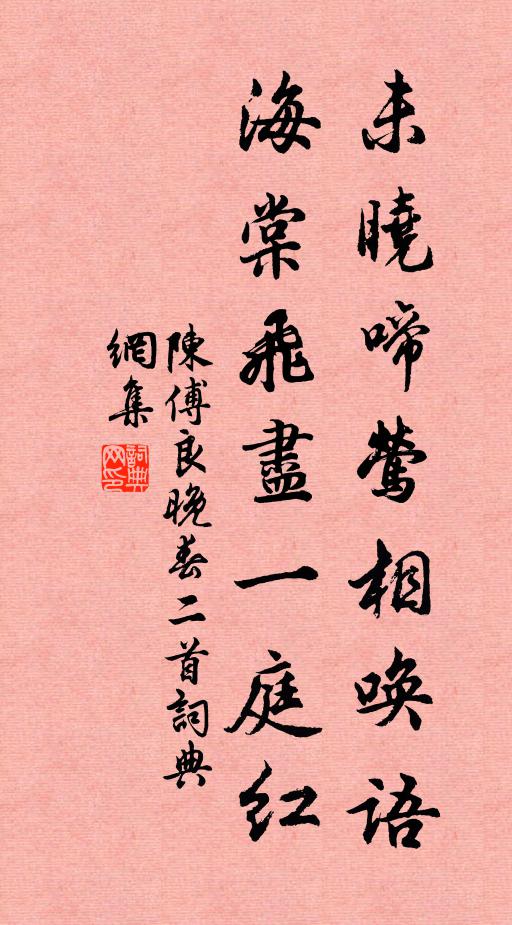 未曉啼鶯相喚語
海棠飛盡一庭紅
陳傅良晚春二首詞典
網集
詞典網印